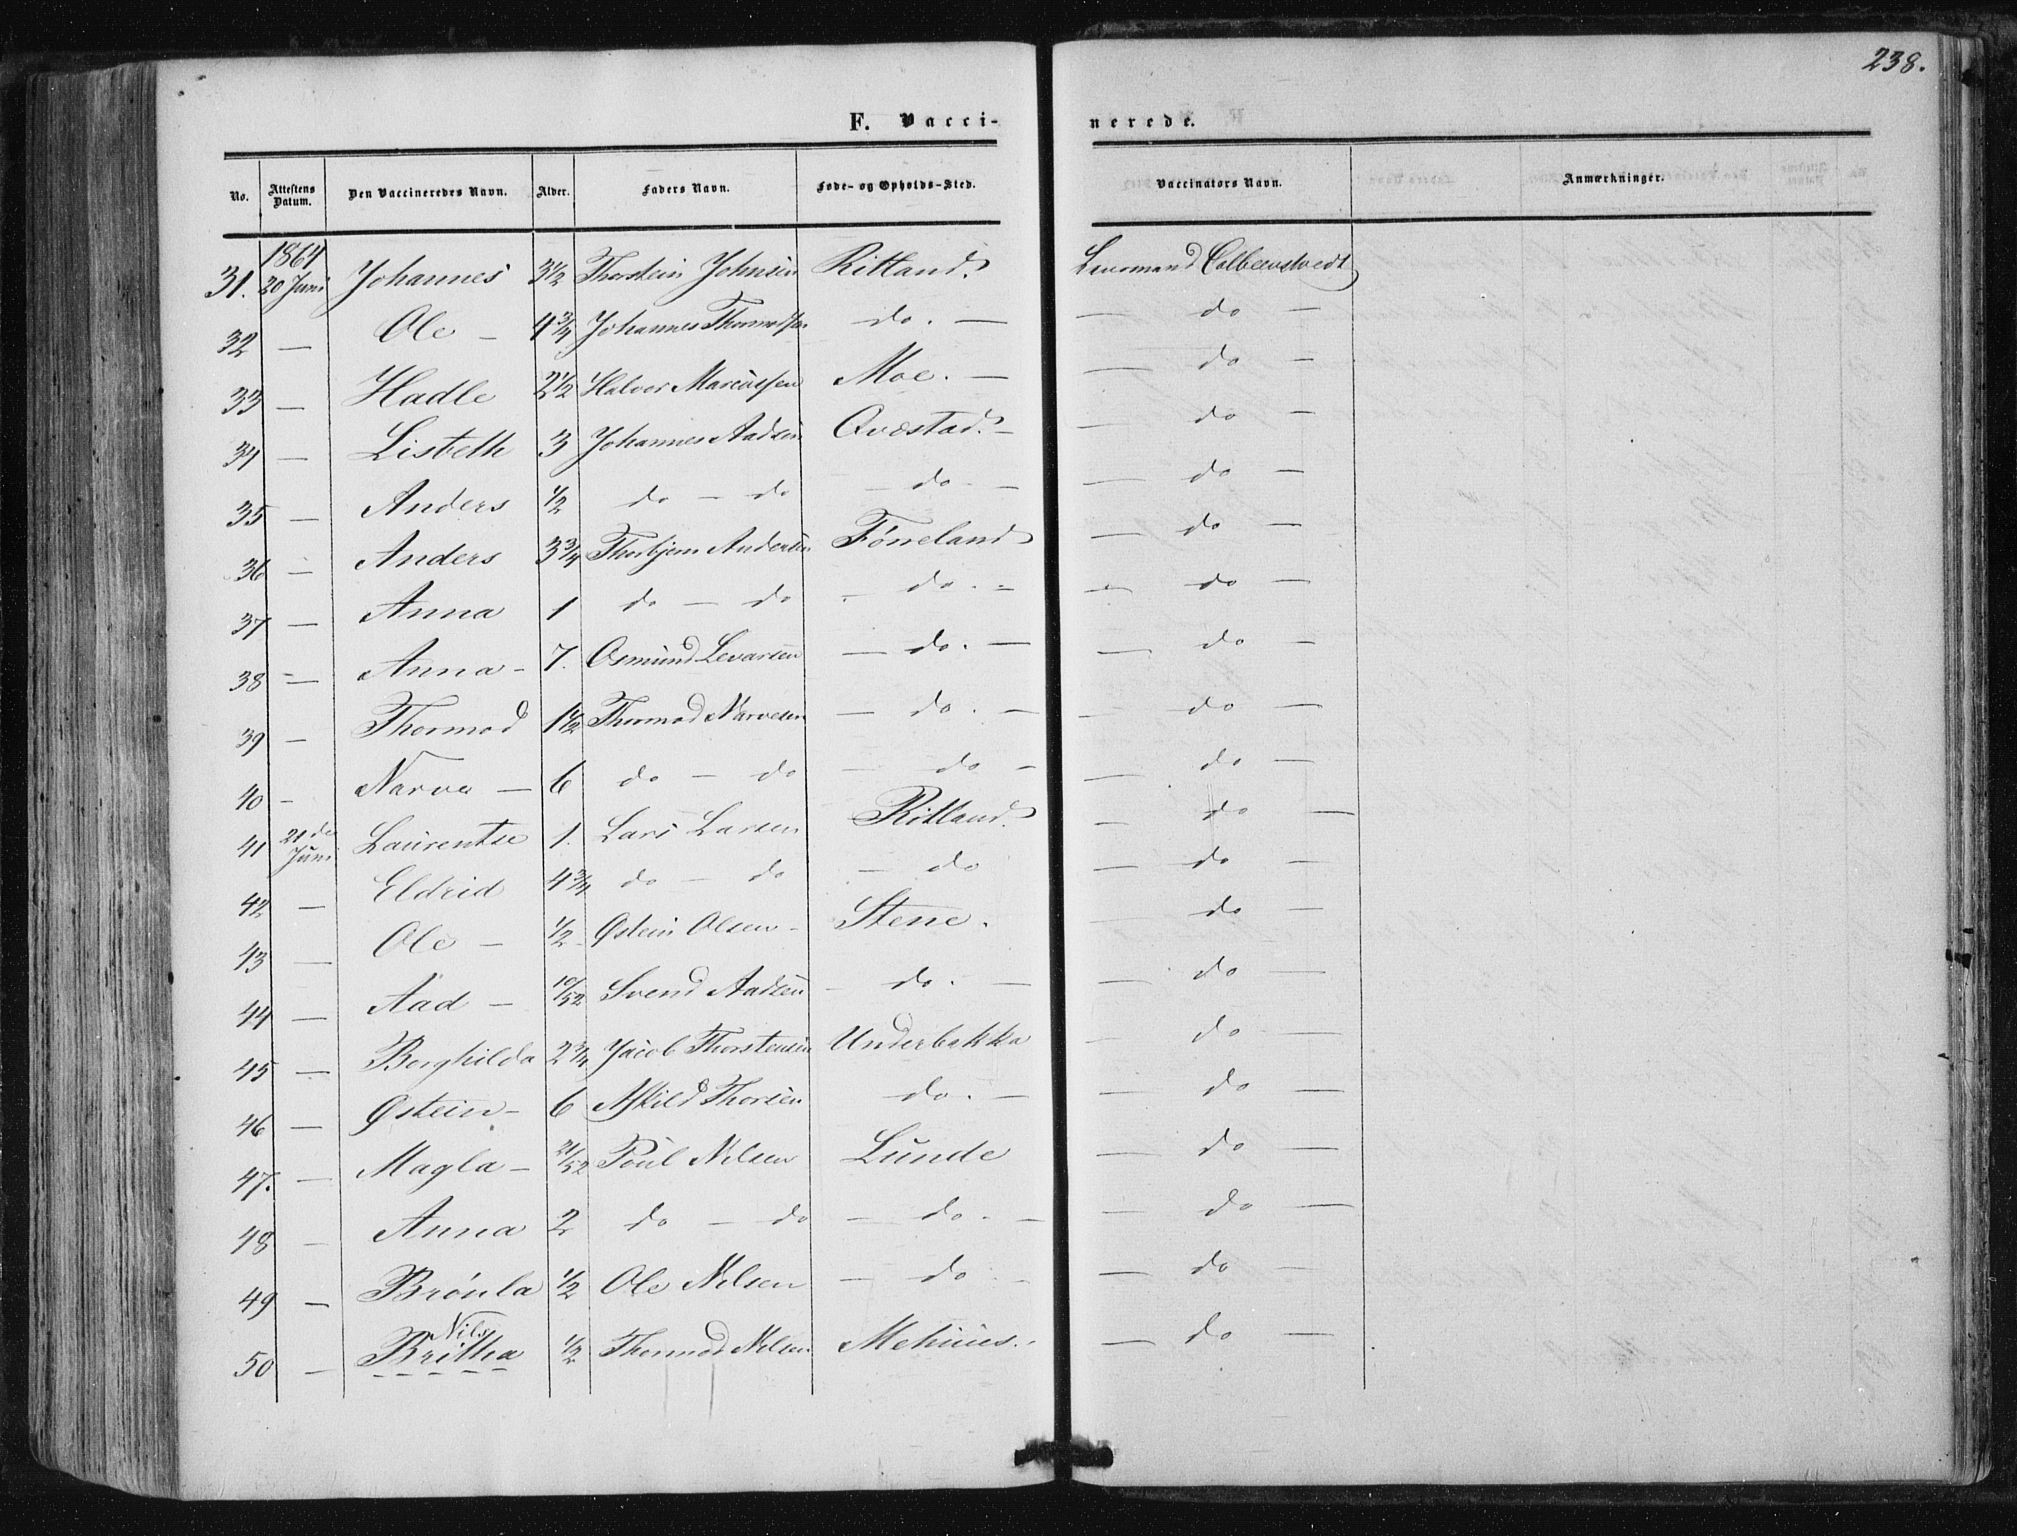 238.
F. Vaccinerede.
No. Attestens Datum. Den Vaccineredes Navn. Alder. Faders Navn. Føde- og Opholds-Sted. Vaccinators Navn. Anmærkninger.
1864
31. 20 Juni Johannes 3½ Thorstein Johnsen Ritland. Lensmand
32 — Ole — 4¾ Johannes Thormodsen do. — — do —
33 — Hadle 2½ Halvor Marcussen Moe. — — do —
34 — Lisbeth 3 Johannes Aadsen Qvæstad. — — do —
35 — Anders ½ do — do — do — — do —
36 — Anders 3¾ Thorbjørn Andersen Tøneland — do —
37 — Anna 1 do — do — do. — — do —
38 — Anna — 7. Osmund Levarsen — do. — — do —
39 — Thormod 1½ Thormod Narvesen — do. — — do —
40 — Narve — 6 do — do — do — — do —
41 21de Juni Laurentse 1. Lars Larsen Ritland. — do —
42 — Eldrid 4¾ do — do — do — do —
43 — Ole — ½ Østein Olsen — Stene. — do —
44 — Aad — 10/52 Svend Aadsen — do. — — do —
45 — Borghilda 2¾ Jacob Thorstensen Underbakka — do —
46 — Østein — 6 Askild Thorsen do. — — do —
47. — Magla — 21/52 Poul Nilsen Lunde — do —
48 — Anna 2 do — do — do. — — do —
49 — Brønla ½ Ole Nilsen — do — — do —
Nils
50 — Britha ½ Thormod Nilsen Mehuus. — do —